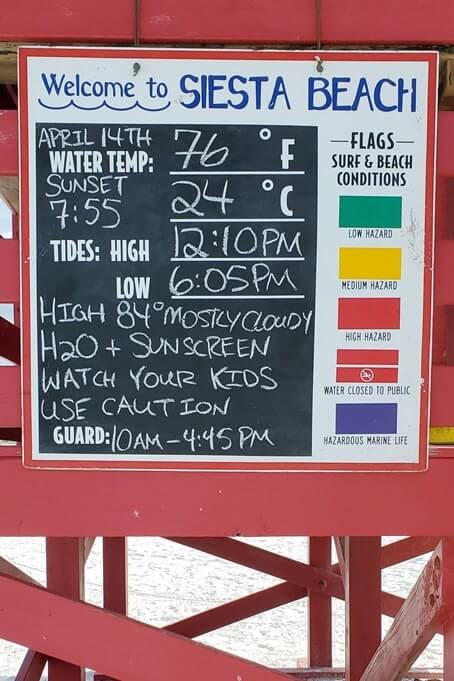 Welcome to SIESTA BEACH
APRIL 14TH
WATER TEMP: 76 °F
24 °C
SUNSET
7:55
TIDES: HIGH 12:10PM
LOW 6:05PM
HIGH 84° MOSTLY CLOUDY
H2O + SUNSCREEN
WATCH YOUR KIDS
USE CAUTION
GUARD: 10AM-4:45 PM
FLAGS
SURF & BEACH
CONDITIONS
LOW HAZARD
MEDIUM HAZARD
HIGH HAZARD
WATER CLOSED TO PUBLIC
HAZARDOUS MARINE LIFE